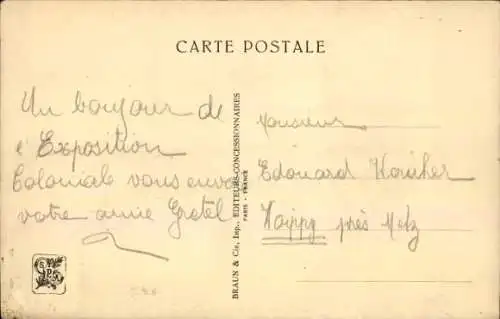 CARTE POSTALE
Un bonjour de
l'Exposition
Coloniale vous envoi
votre amie Gretel
BRAUN & Cie, Imp., EDITEURS-CONCESSIONNAIRES
PARIS - FRANCE
Monsieur
Edouard
Woippy près Metz